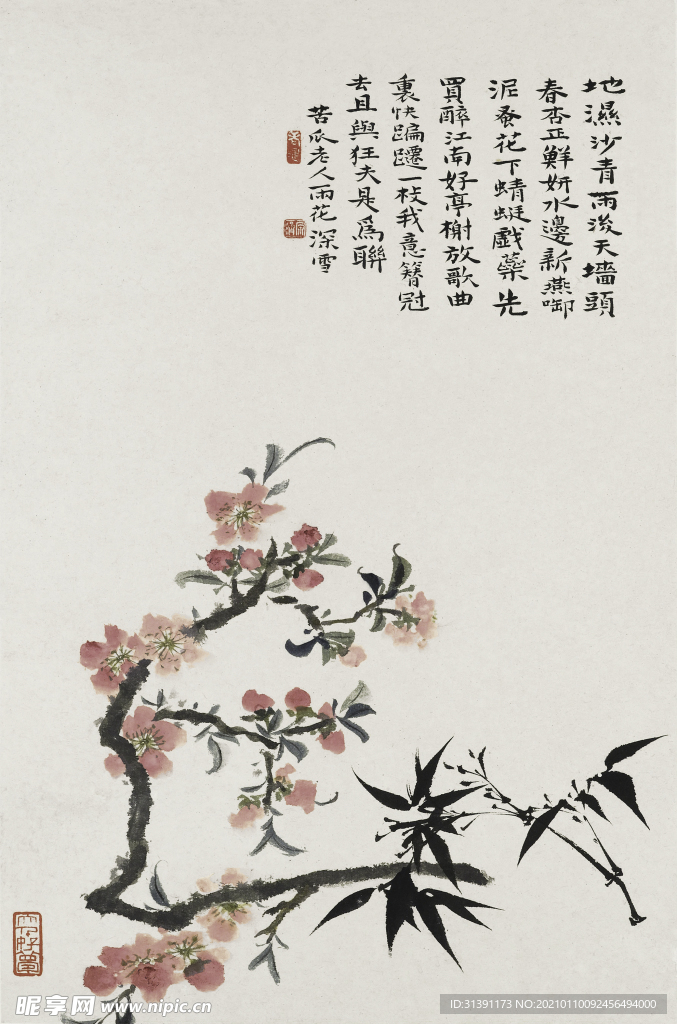 地濕沙青雨後天墻頭
春杏正鮮妍水邊新燕啣
泥蚤花下蜻蜓戲蘂先
買醉江南好亭榭放歌曲
裏快蹁躚一枝我意簪冠
去且與狂夫是爲聯
苦瓜老人雨花深雪
昵享网 www.nipic.cn
ID:31391173 NO:20210110092456494000